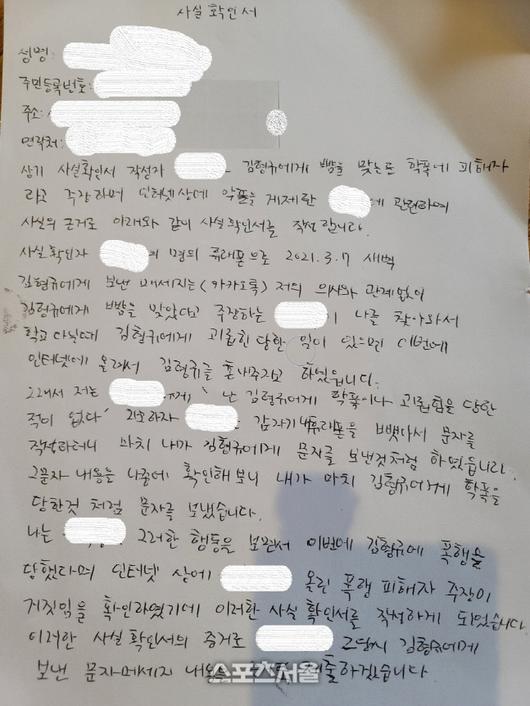 사실확인서
성명:
주민등록번호:
주소:
연락처:
상기 사실확인서 작성자 김형규에게 뺨을 맞는 등 학폭에 피해자
라고 주장하며 인터넷상에 악플을 게제한 에 관련하여
사실의 근거로 아래와 같이 사실확인서를 작성합니다.
사실확인자 의 명의 휴대폰으로 2021.3.7 새벽
김형규에게 보낸 메세지는(카카오톡) 저의 의사와 관계없이
김형규에게 뺨을 맞았다고 주장하는 이 나를 찾아와서
학교 다닐때 김형규에게 괴롭힘 당한 일이 있으면 이번에
인터넷에 올려서 김형규를 혼내주자고 하였습니다.
그래서 저는 에게 '난 김형규에게 학폭이나 괴롭힘을 당한
적이 없다' 라고하자 갑자기 내 휴대폰을 뺏아서 문자를
작성하더니 마치 내가 김형규에게 문자를 보낸것처럼 하였습니다.
그문자 내용을 나중에 확인해보니 내가 마치 김형규에게 학폭을
당한것 처럼 문자를 보냈습니다.
나는 그러한 행동을 보면서 이번에 김형규에 폭행을
당했다며 인터넷 상에 올린 폭행 피해자 주장이
거짓임을 확인하였기에 이러한 사실확인서를 작성하게 되었습니다.
이러한 사실확인서의 증거로 그당시 김형규에게
보낸 문자메세지 내용을 제출하겠습니다
스포츠서울